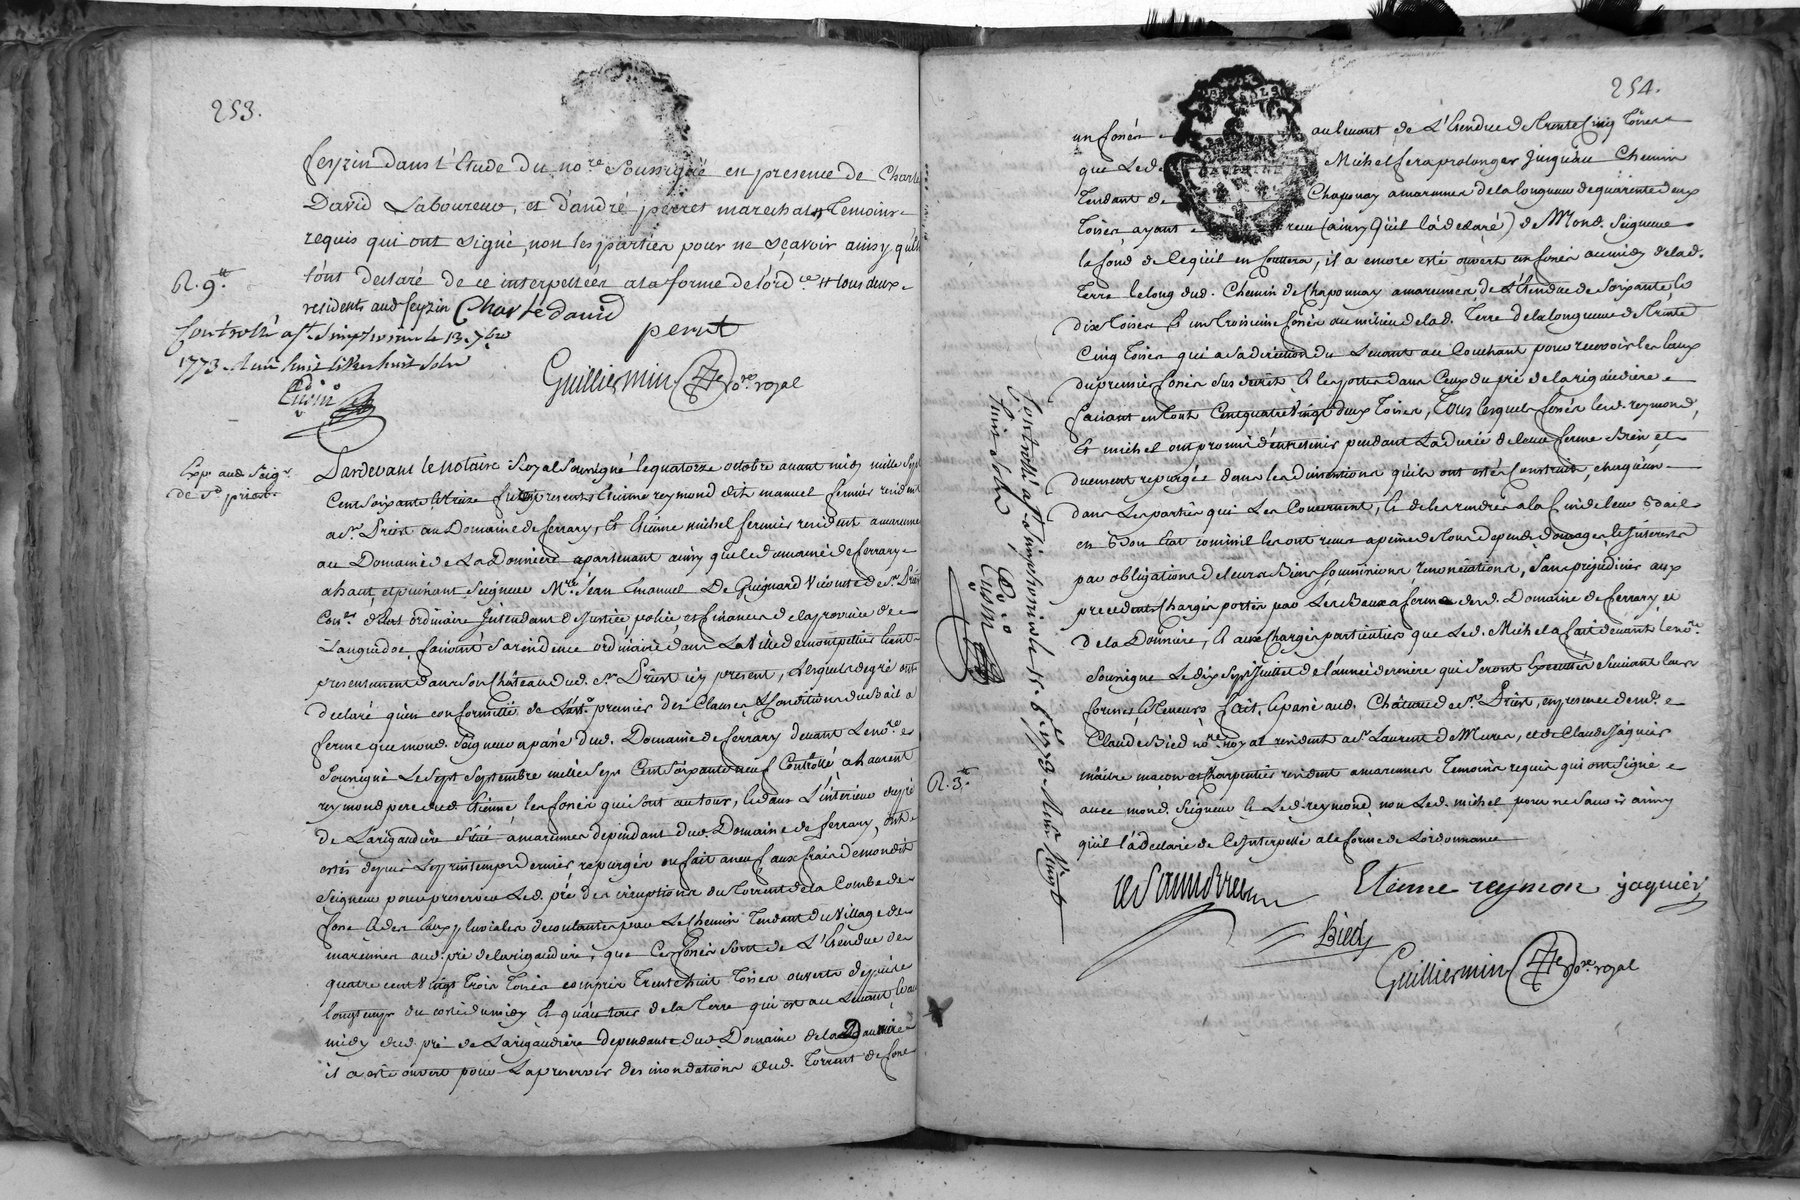 253.
feyzin dans l'Etude du no.re Soussigné en presence de Charle
David Laboureur, et d'andré perret marechal Temoins
requis qui ont signé, non les parties pour ne sçavoir ainsy qu'ils
l'ont declaré de ce interpellées a la forme de l'ord.ce # tous deux
residents aud feyzin Charle david
R. 9.tt
Controllé a st Simphorien le 13. 7bre
1773
perret
Guilliermin No.re royal
Cusin
Exp. aud. Seig.r
de S.t priest.
Pardevant le notaire Royal Soussigné le quatorze octobre avant midy mille Sept
Cent Soixante et treize furent presents Etienne reymond dit manuel fermier resident
a St. Priest au Domaine de ferrary, Et Etienne michel fermier resident a marennes
au Domaine de La Donniere apartenant ainsy que led. domaine de ferrary
a haut et puissant Seigneur M.re Jean Emanuel De Guignard Vicomte de St. Priest
Con.er d'Etat ordinaire Intendant de Justice police et finances de la province de
Languedoc, faisant Sa residence ordinaire dans La Ville de montpellier
presentement dans Son Chateau dud. St. Priest icy present, Lesquels de gré ont
declaré qu'en conformité de L'art.e premier des Clauses & Conditions du Bail a
ferme que mond. Seigneur a passé dud. Domaine de ferrary devant Le no.re
Soussigné Le Sept Septembre mille Sept Cent Soixante neuf Controllé a haurent
reymond pere dud. Etienne les fossés qui sont au tour, & dans L'interieur du pré
de Larigaudiere Situé a marennes dependant dud. Domaine de ferrary, ont
estés depuis Le printemps dernier repurgés ou fait a neuf aux frais de mondit
Seigneur pour preserver Led. pré des eruptions du Torrent de la Combe de
fone & des Eaux pluviales decoulantes par Le Chemin Tendant du Village de
marennes aud. pré de Larigaudiere, que Ces fossés Sont de L'Etendue de
quatre cent Vingt Trois Toises compris Trente huit Toises ouverts depuis
longtemps du costé du midy & qu'au tour de la Terre qui est au Levant & au
midy dud. pré de Larigaudiere dependante dud. Domaine de la Donniere
il a esté ouvert pour La preserver des inondations dud. Torrent de fone
254.
un fossés au levant de L'Etendue de Trente Cinq Toises
que Led. Michel fera prolonger Jusqu'au Chemin
Tendant de Chaponnay a marennes de la longueur de quarente deux
Toises ayant receu (ainsy Qu'il l'a declaré) de Mond. Seigneur
le fond de Ce qu'il en Couttera, il a encore esté ouvert un fossés au midy de lad.
Terre le long dud. Chemin de Chaponnay a marennes de L'Etendue de Soixante &
dix Toises & un Troisieme fossés au milieu de lad. Terre de la longueur de Trente
Cinq Toises qui a Sa direction du Levant au Couchant pour recevoir les Eaux
du premier fossés Sus decrit & les porter dans Ceux du pré de Larigaudiere
faisant en tout Cent quatre Vingt deux Toises, Tous lesquels fossés lesd. reymond,
Et michel ont promis d'entretenir pendant La Durée de leur ferme Bien et
duement repurgés dans les dimentions qu'ils ont estés Construit, chaqu'un
dans Les parties qui Les Concernent, & de les rendres a la fin de leur d. Bail
en Bon Etat comm'il les ont reçus a peine de tous depends dommages & Interests
par obligations de leurs Biens Soumissions, renonciations, Sans prejudicier aux
precedents Charges portés par Les Baux a ferme desd. Domaine de ferrary et
De la Donniere, & aux Charges particuliers que Led. Michel a fait devant le no.re
Soussigné Le dix Sept Juillet de l'année derniere qui Seront Executtés Suivant leurs
formes & teneurs fait, & passé aud. Château de St. Priest, en presence de m.e
Claude Bied no.re Royal resident a St Laurent De Mures, et de Claude Jâquier
maitre macon et charpentier resident a marennes Temoins requis qui ont Signé
avec mond. Seigneur & Led. reymond, non Led. michel pour ne Savoir ainsy
qu'il l'a declaré de Ce Interpellé a la forme de L'ordonnance
R. 3.tt
Controllé a St Simphorien le 15. 8bre 1773
huit Sols
Cusin
Etienne reymon jaquier
Bied
Guilliermin No.re royal